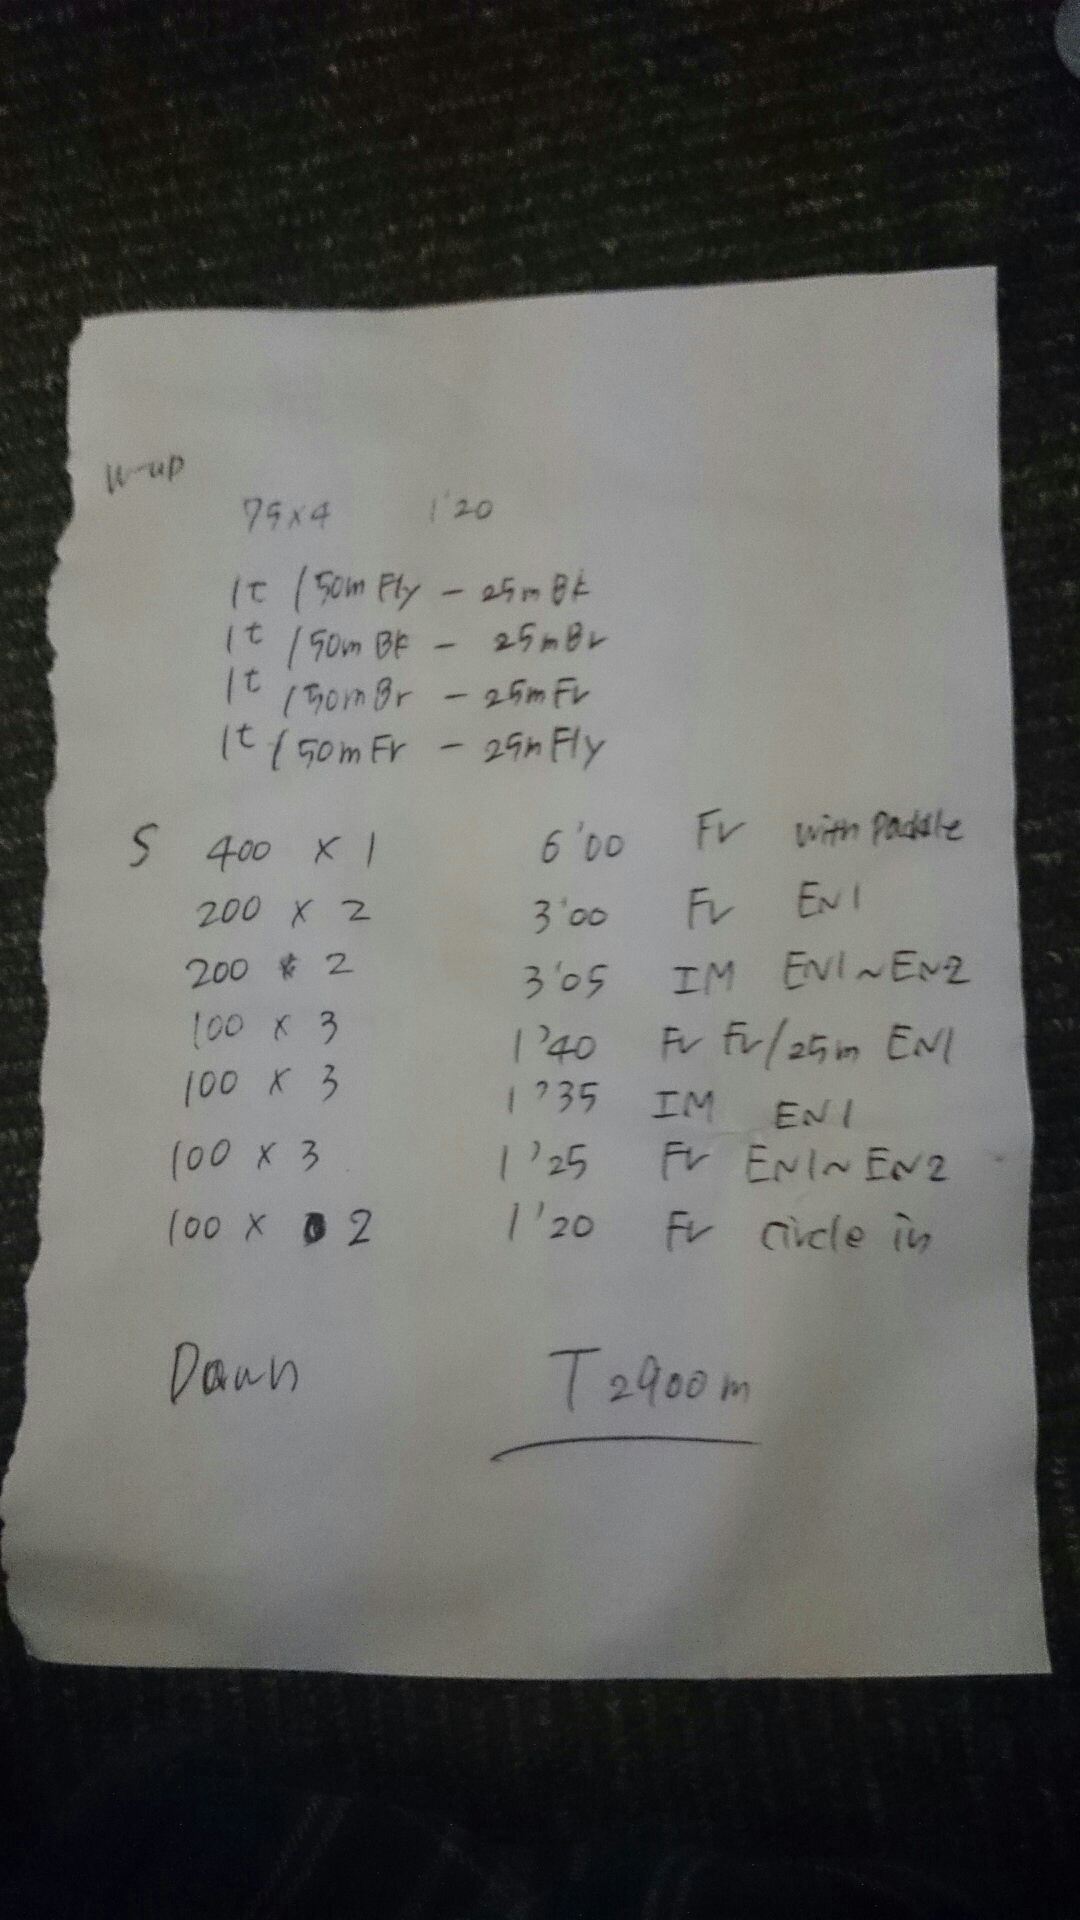 W-up
75×4 1'20
1t /50m Fly - 25m Bk
1t /50m Bk - 25m Br
1t /50m Br - 25m Fr
1t /50m Fr - 25m Fly
S 400 × 1 6'00 Fr with Paddle
200 × 2 3'00 Fr EN1
200 × 2 3'05 IM EN1~EN2
100 × 3 1'40 Fr Fr/25m EN1
100 × 3 1'35 IM EN1
100 × 3 1'25 Fr EN1~EN2
100 × 2 1'20 Fr circle in
Down T 2900m